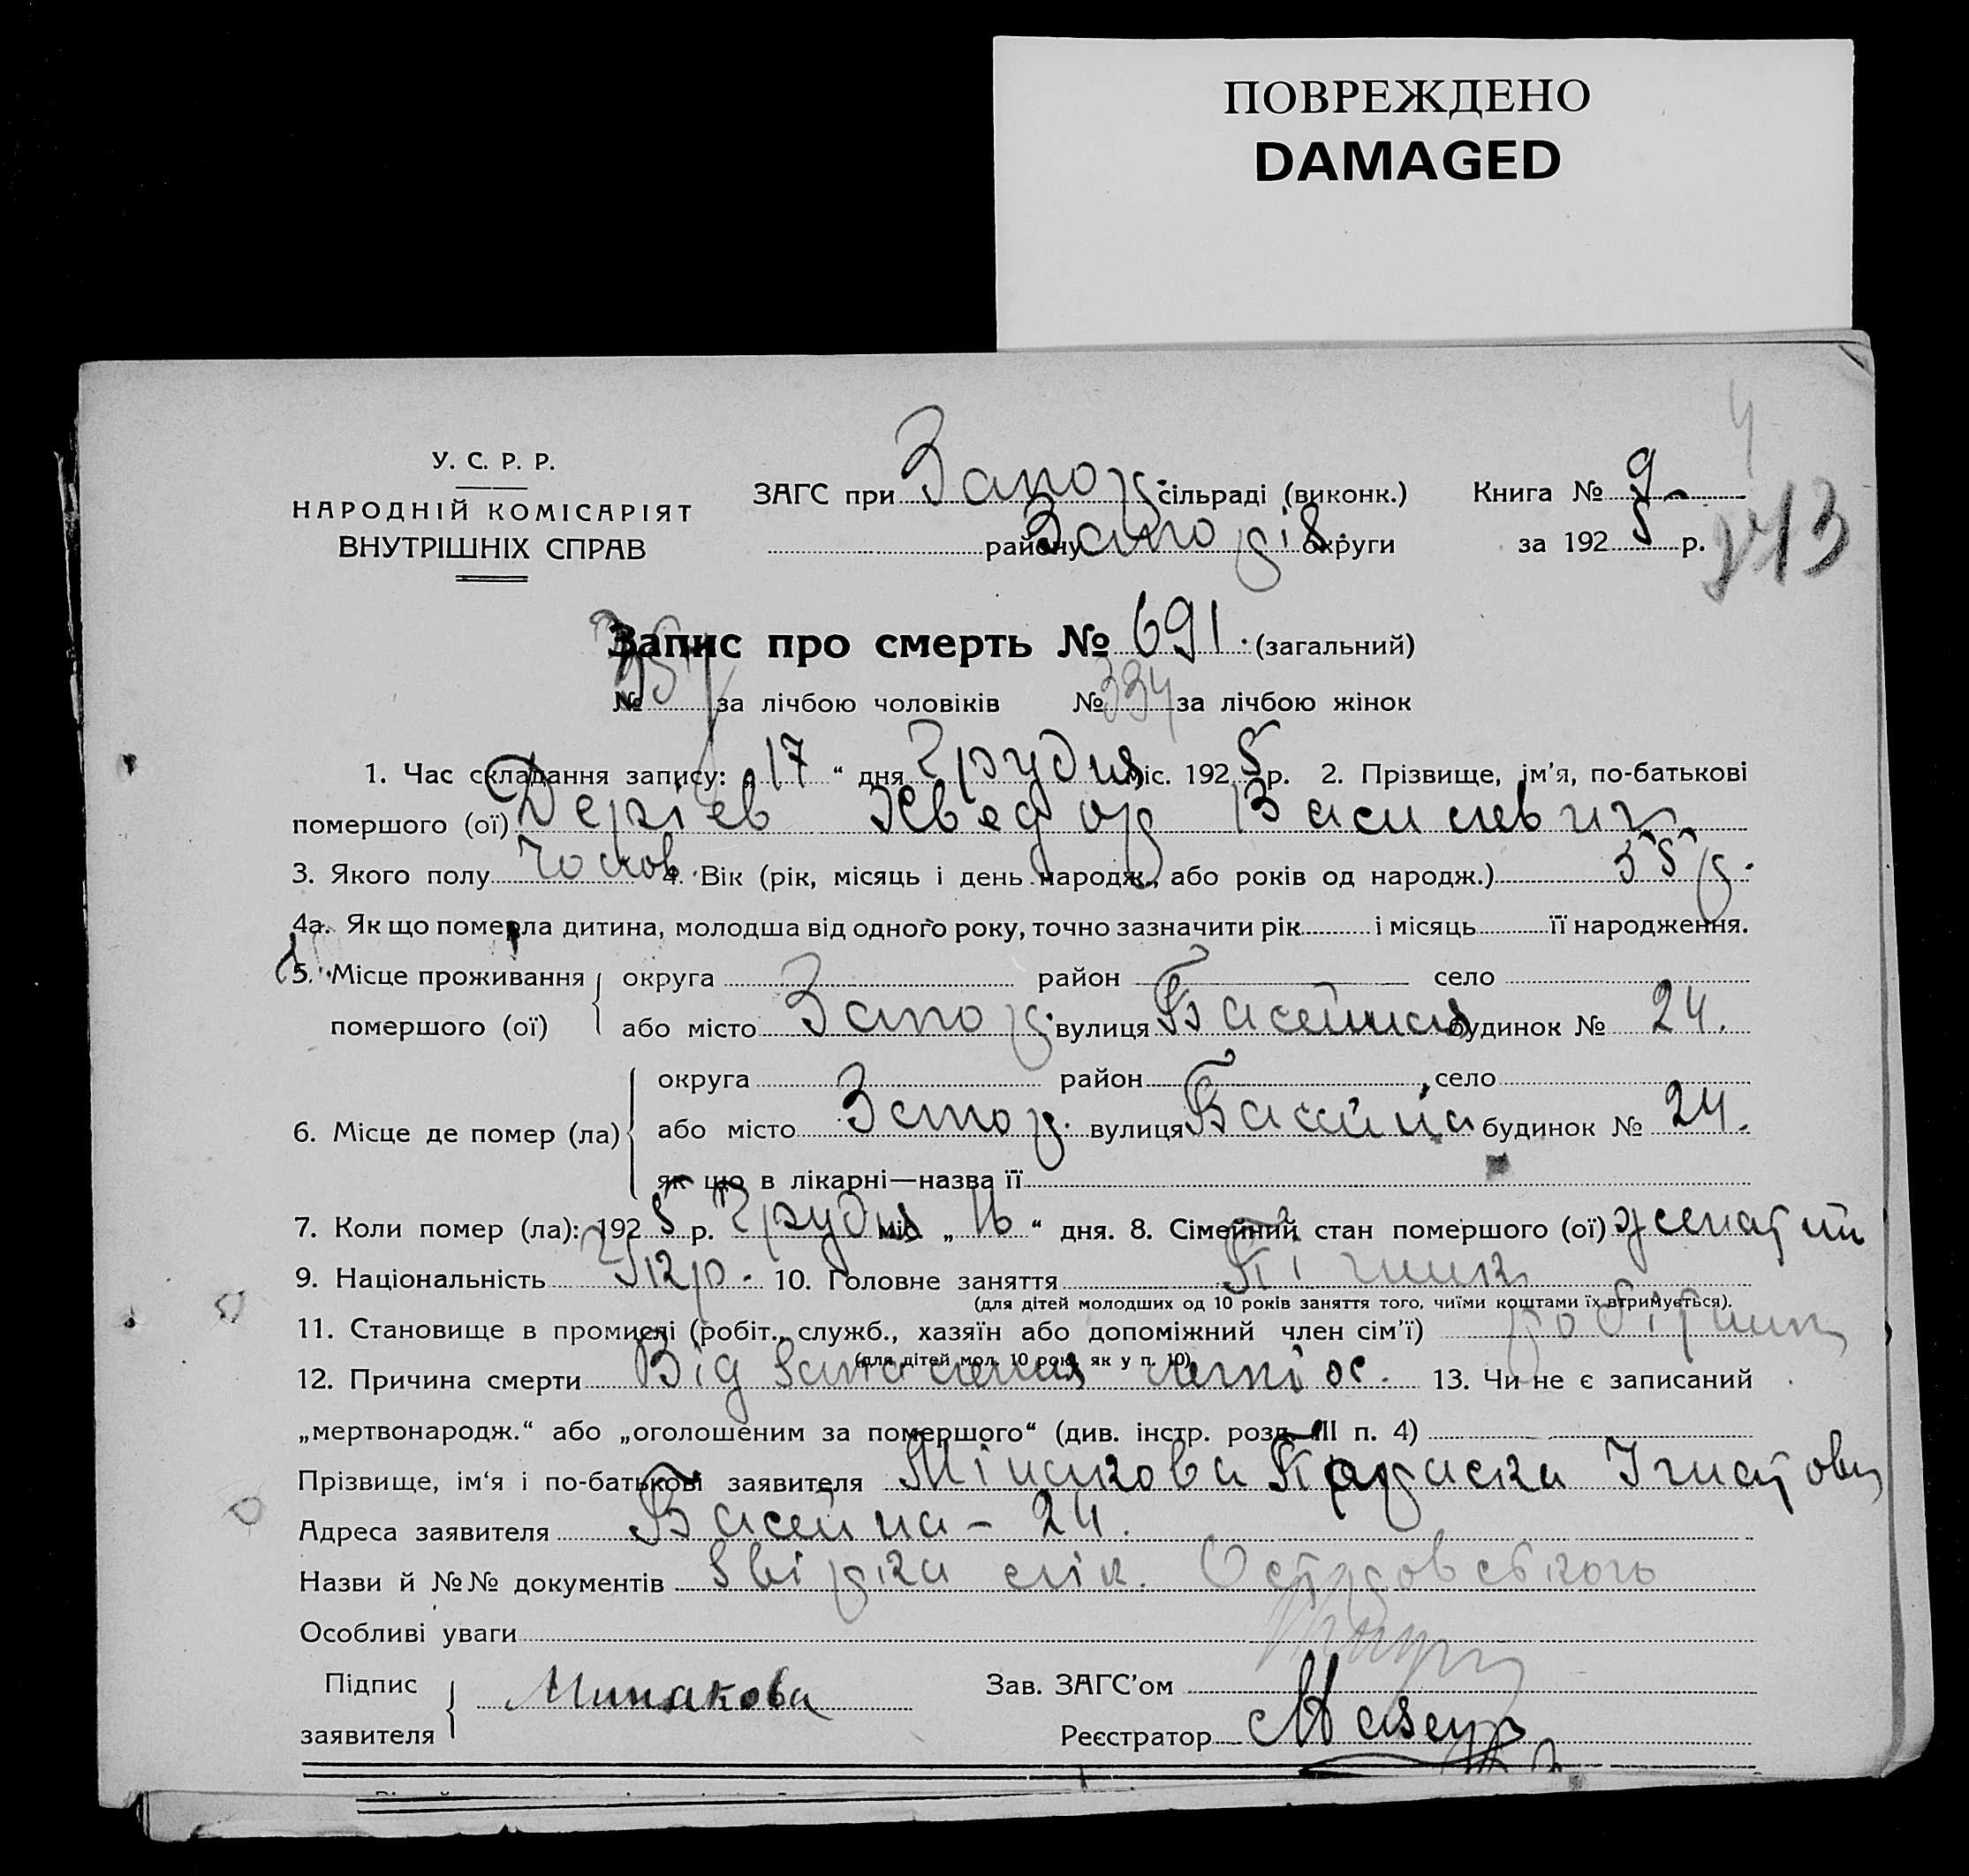 ПОВРЕЖДЕНО
DAMAGED
4
У. С. Р. Р.
НАРОДНІЙ КОМІСАРІЯТ
ВНУТРІШНІХ СПРАВ
ЗАГС при Запор. сільраді (виконк.) Книга № 9
району Запоріз. округи за 1925 р.
Запис про смерть № 691. (загальний)
№ 357 за лічбою чоловіків № 334 за лічбою жінок
1. Час складання запису: „17“ дня Грудня міс. 1925 р. 2. Прізвище, ім'я, по-батькові
помершого (ої) Хведор Василевич
3. Якого полу чолов. 4. Вік (рік, місяць і день народж., або років од народж.) 35 р.
4а. Як що померла дитина, молодша від одного року, точно зазначити рік і місяць її народження.
5. Місце проживання округа район село
помершого (ої) або місто Запор. вулиця Басейная будинок № 24.
округа район село
6. Місце де помер (ла) або місто Запор. вулиця Басейна будинок № 24.
як що в лікарні—назва її
7. Коли помер (ла): 1925 р. Грудня міс. „16“ дня. 8. Сімейний стан помершого (ої) женатий
9. Національність Укр. 10. Головне заняття
(для дітей молодших од 10 років заняття того, чиїми коштами їх втримується).
11. Становище в промислі (робіт., служб., хазяїн або допоміжний член сім'ї) робітник
(для дітей мол. 10 рок. як у п. 10)
12. Причина смерти Від запалення 13. Чи не є записаний
„мертвонародж.“ або „оголошеним за помершого“ (див. інстр. розд. III п. 4)
Прізвище, ім'я і по-батькові заявителя Мінакова Параска Ігнатов
Адреса заявителя Басейна - 24.
Назви й №№ документів лік. Островського
Особливі уваги
Підпис Минакова Зав. ЗАГС'ом
заявителя Реєстратор